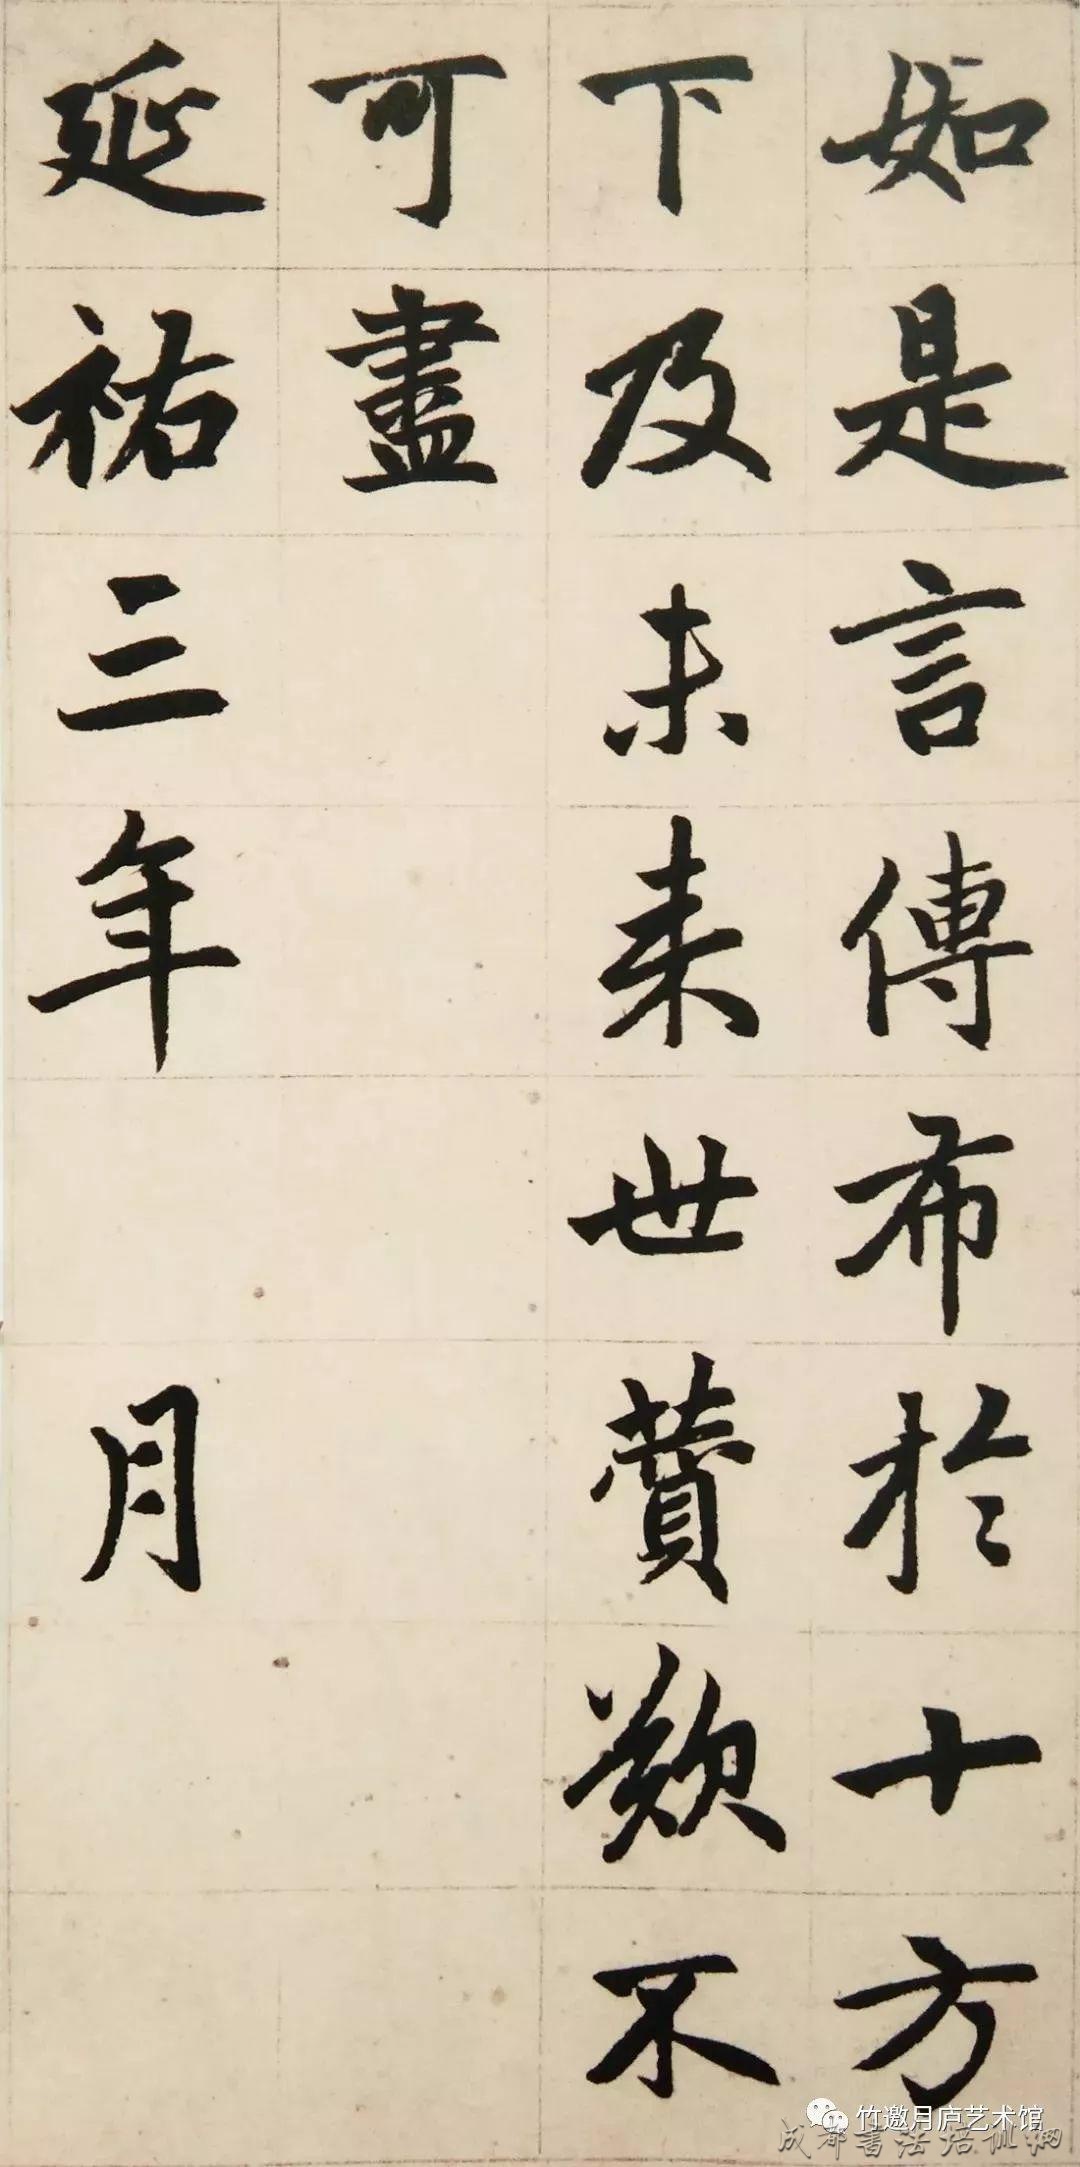 如是言傳布於十方
下及未来世賛歎不
可盡
延祐三年 月
竹邀月庐艺术馆
成都書法培训网